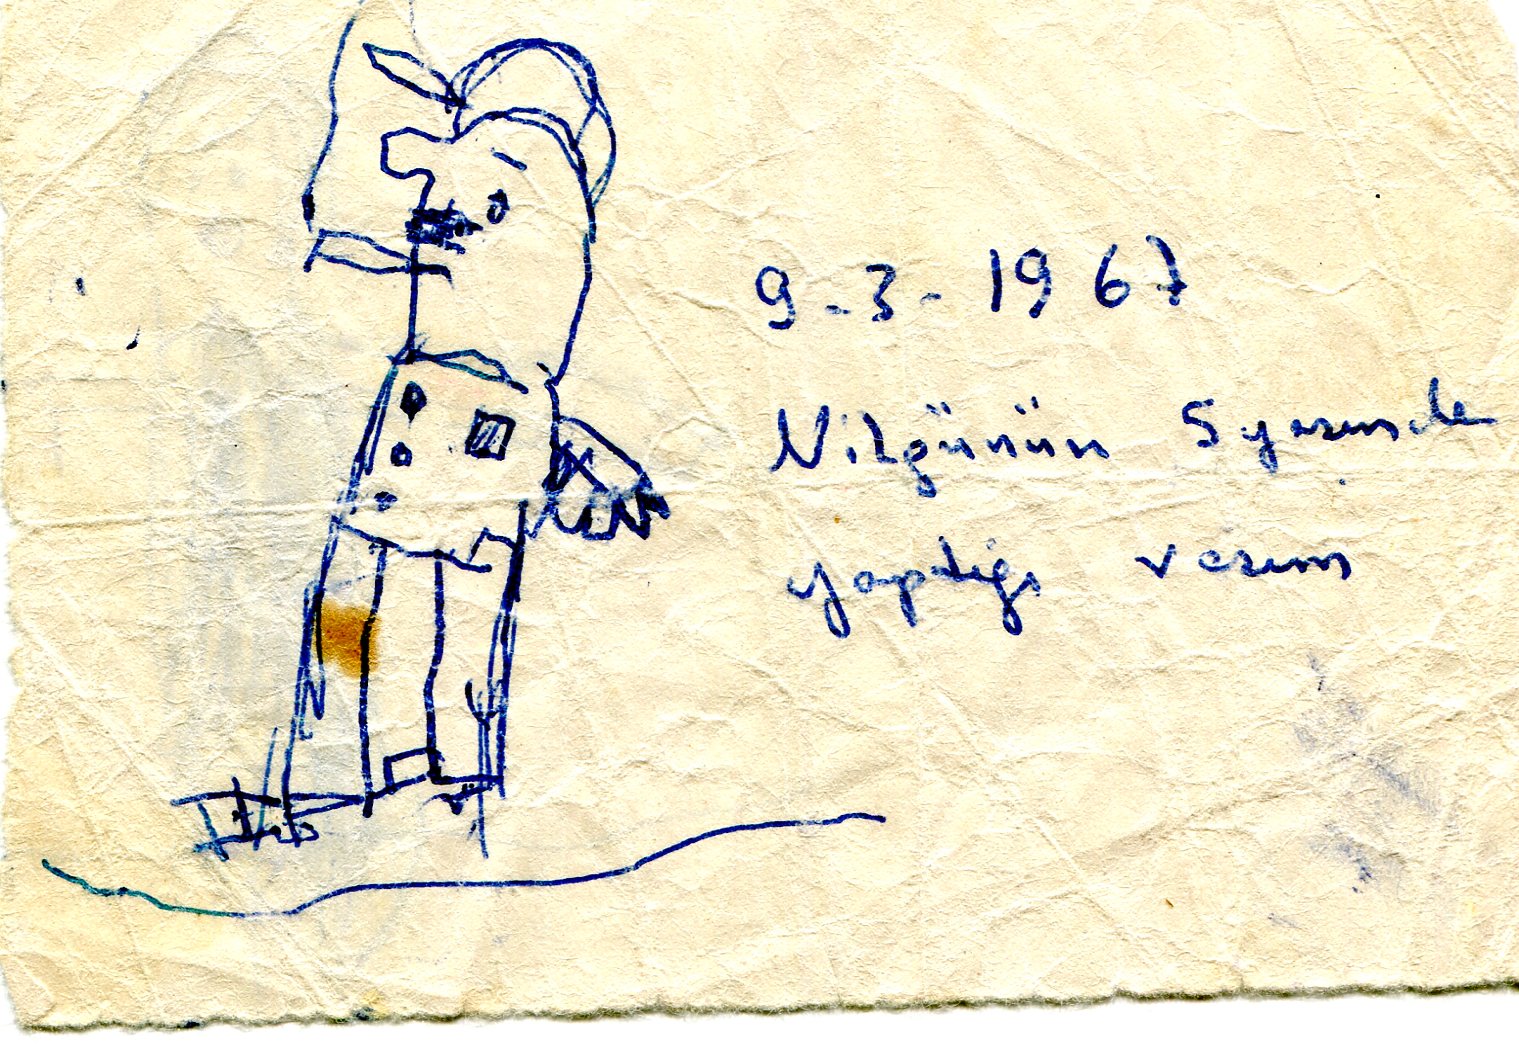 9-3-1967
Nilgünün 5 yaşında
yaptığı resim